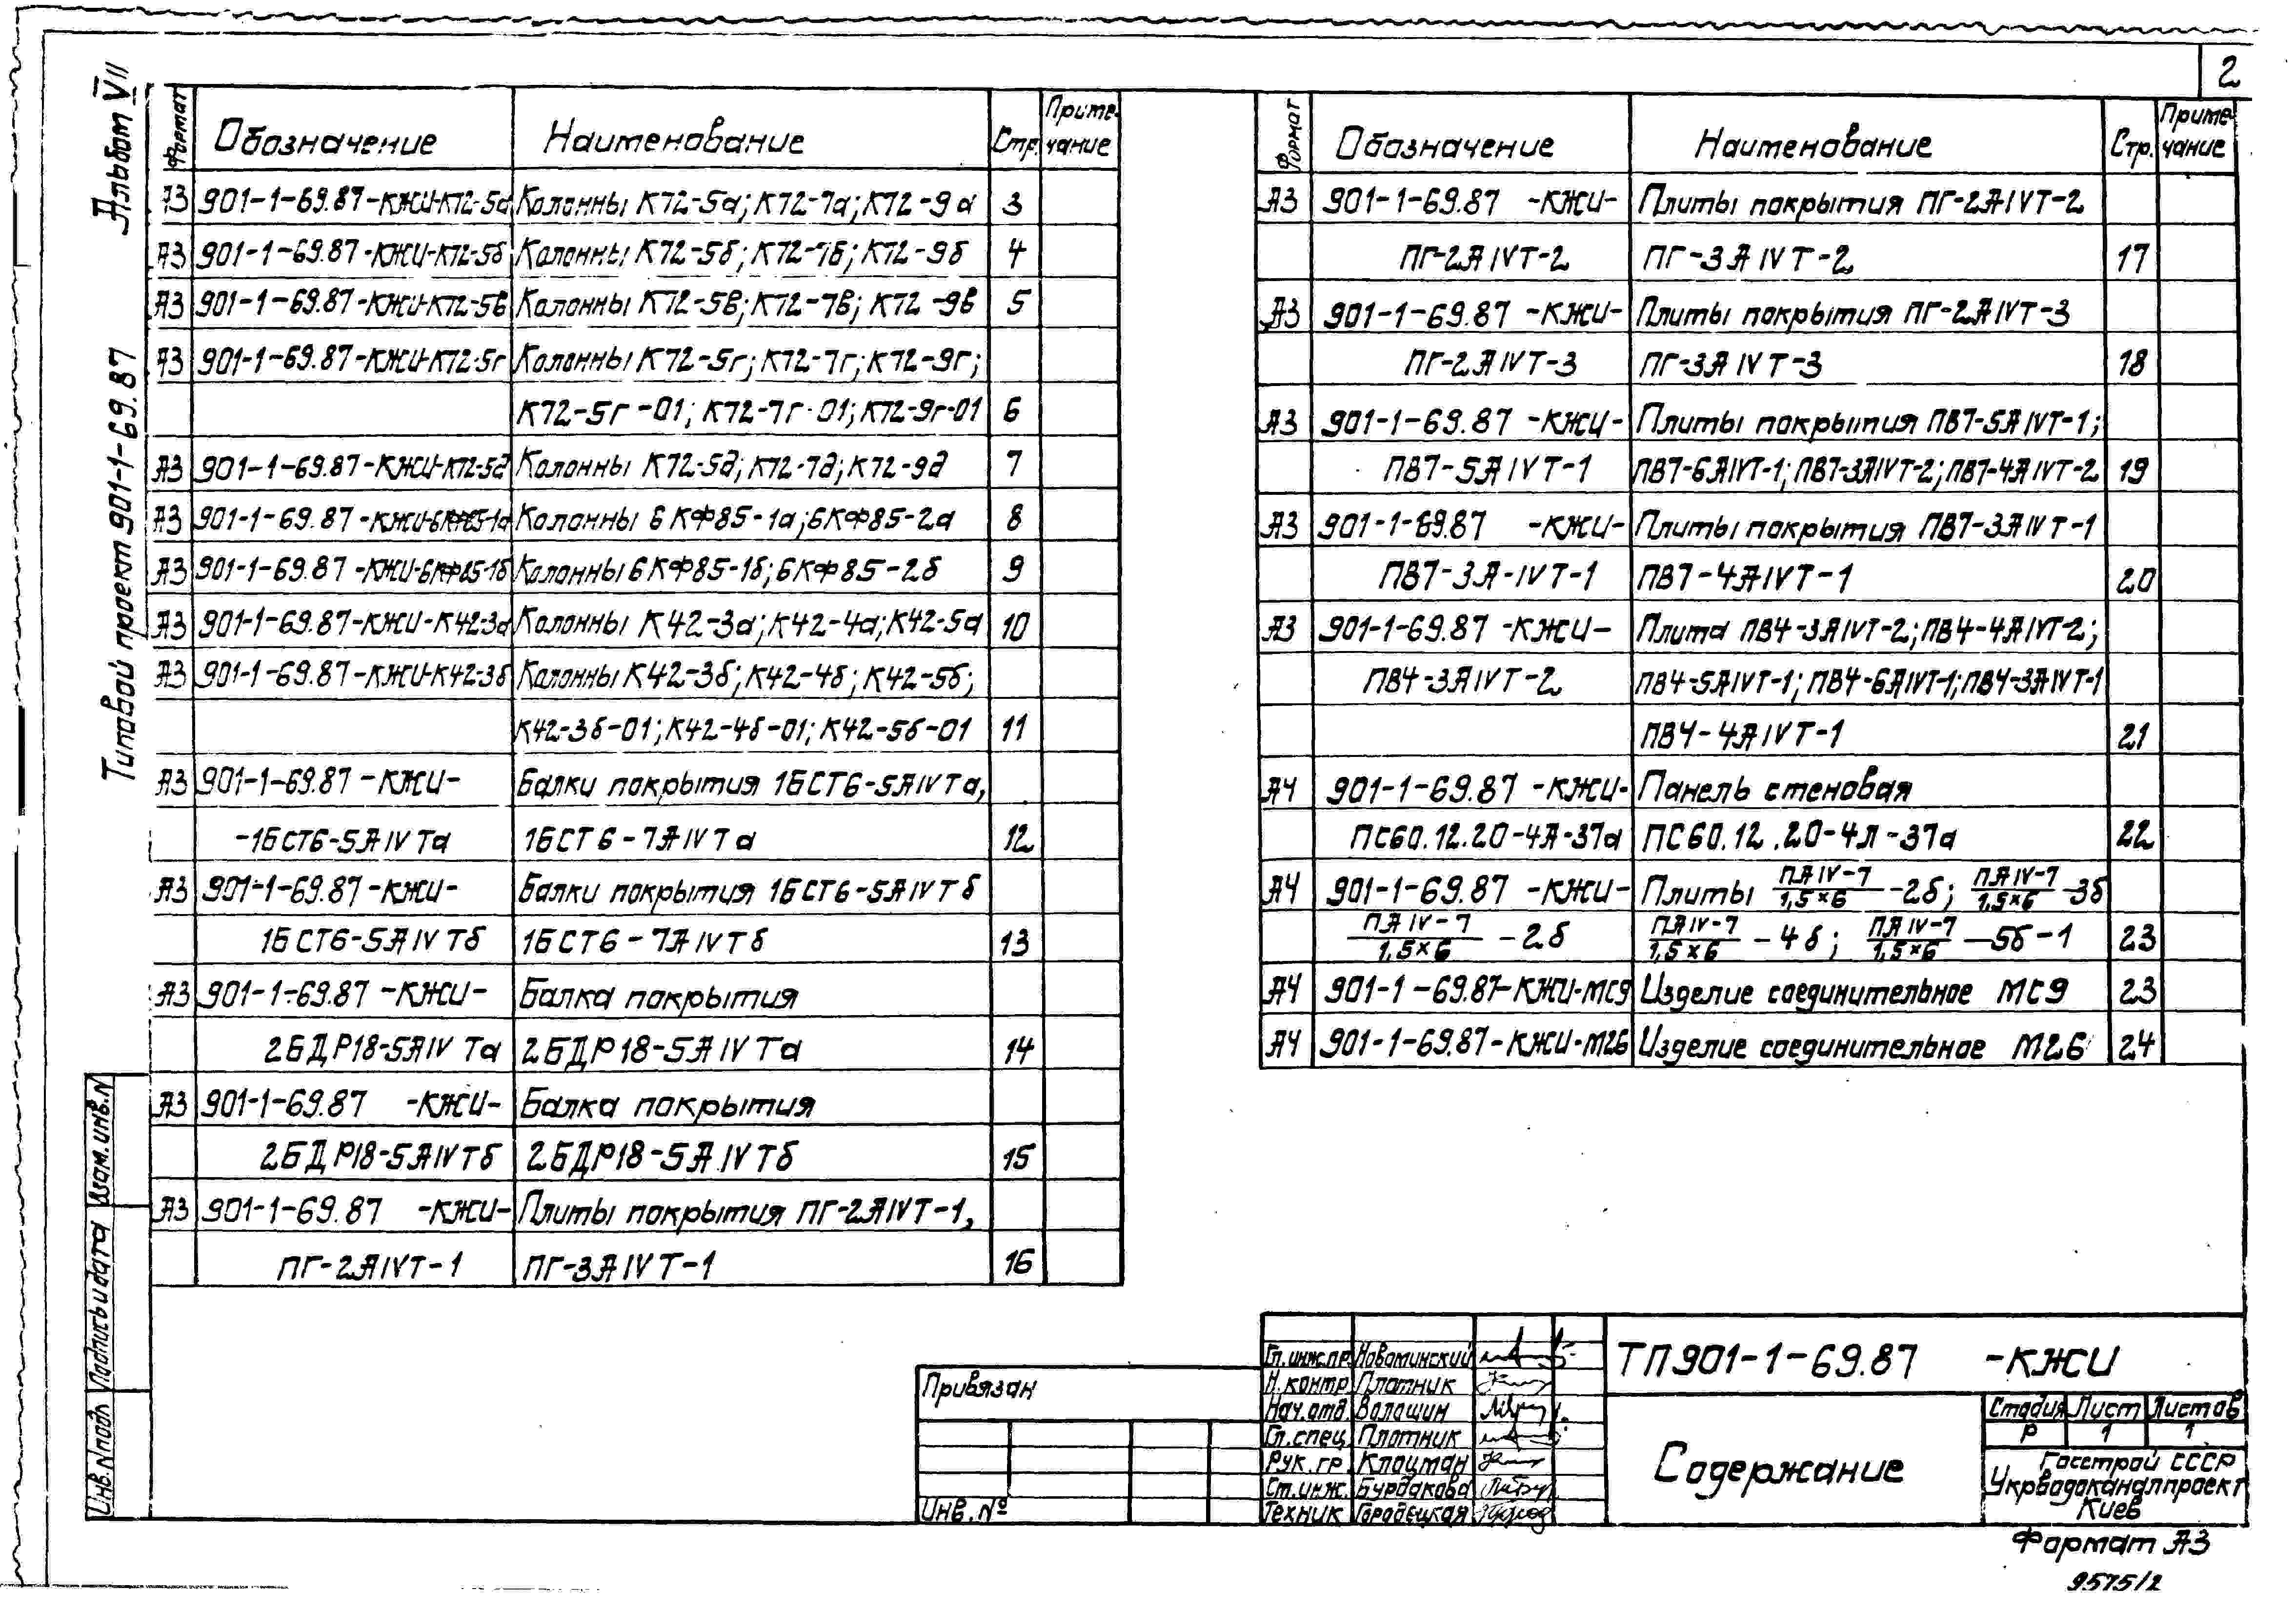 2
Альбом VII
Типовой проект 901-1-69.87
Формат Обозначение Наименование Стр. Приме-чание
А3 901-1-69.87-КЖИ-К72-5а Колонны К72-5а; К72-7а; К72-9а 3
А3 901-1-69.87-КЖИ-К72-5б Колонны К72-5б; К72-7б; К72-9б 4
А3 901-1-69.87-КЖИ-К72-5в Колонны К72-5в; К72-7в; К72-9в 5
А3 901-1-69.87-КЖИ-К72-5г Колонны К72-5г; К72-7г; К72-9г;
К72-5г-01; К72-7г-01; К72-9г-01 6
А3 901-1-69.87-КЖИ-К72-5д Колонны К72-5д; К72-7д; К72-9д 7
А3 901-1-69.87-КЖИ-6КФ85-1а Колонны 6КФ85-1а; 6КФ85-2а 8
А3 901-1-69.87-КЖИ-6КФ85-1б Колонны 6КФ85-1б; 6КФ85-2б 9
А3 901-1-69.87-КЖИ-К42-3а Колонны К42-3а; К42-4а; К42-5а 10
А3 901-1-69.87-КЖИ-К42-3б Колонны К42-3б; К42-4б; К42-5б;
К42-3б-01; К42-4б-01; К42-5б-01 11
А3 901-1-69.87-КЖИ- Балки покрытия 1БСТ6-5АIVТа,
-1БСТ6-5АIVТа 1БСТ6-7АIVТа 12
А3 901-1-69.87-КЖИ- Балки покрытия 1БСТ6-5АIVТб
1БСТ6-5АIVТб 1БСТ6-7АIVТб 13
А3 901-1-69.87-КЖИ- Балка покрытия
2БДР18-5АIVТа 2БДР18-5АIVТа 14
А3 901-1-69.87 -КЖИ- Балка покрытия
2БДР18-5АIVТб 2БДР18-5АIVТб 15
А3 901-1-69.87 -КЖИ- Плиты покрытия ПГ-2АIVТ-1,
ПГ-2АIVТ-1 ПГ-3АIVТ-1 16
Формат Обозначение Наименование Стр. Приме-чание
А3 901-1-69.87 -КЖИ- Плиты покрытия ПГ-2АIVТ-2
ПГ-2АIVТ-2 ПГ-3АIVТ-2 17
А3 901-1-69.87 -КЖИ- Плиты покрытия ПГ-2АIVТ-3
ПГ-2АIVТ-3 ПГ-3АIVТ-3 18
А3 901-1-69.87 -КЖИ- Плиты покрытия ПВ7-5АIVТ-1;
ПВ7-5АIVТ-1 ПВ7-6АIVТ-1; ПВ7-3АIVТ-2; ПВ7-4АIVТ-2 19
А3 901-1-69.87 -КЖИ- Плиты покрытия ПВ7-3АIVТ-1
ПВ7-3А-IVТ-1 ПВ7-4АIVТ-1 20
А3 901-1-69.87 -КЖИ- Плита ПВ4-3АIVТ-2; ПВ4-4АIVТ-2;
ПВ4-3АIVТ-2 ПВ4-5АIVТ-1; ПВ4-6АIVТ-1; ПВ4-3АIVТ-1
ПВ4-4АIVТ-1 21
А4 901-1-69.87 -КЖИ- Панель стеновая
ПС60.12.20-4Л-37а ПС60.12.20-4Л-37а 22
А4 901-1-69.87 -КЖИ- Плиты ПАIV-7/1,5×6 -2б; ПАIV-7/1,5×6 -3б
ПАIV-7/1,5×6 -2б ПАIV-7/1,5×6 -4б; ПАIV-7/1,5×6 -5б-1 23
А4 901-1-69.87-КЖИ-МС9 Изделие соединительное МС9 23
А4 901-1-69.87-КЖИ-М26 Изделие соединительное М26 24
Взам.инв.N
Подпись и дата
Инв.N подл
Привязан
Инв. №
Гл.инж.пр. Новоминский
Н.контр Плотник
Нач.отд. Волошин
Гл.спец. Плотник
Рук.гр. Клоцман
Ст.инж. Бурдакова
Техник Городецкая
ТП901-1-69.87 -КЖИ
Содержание
Стадия Лист Листов
Р 1 1
Госстрой СССР
Укрводоканалпроект
Киев
Формат А3
9575/2